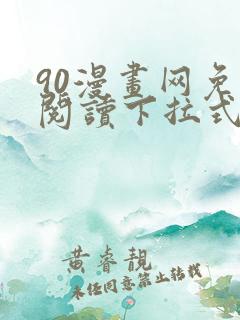 90漫畫网免
閱讀下拉式
黄睿靚
未经同意禁止转载